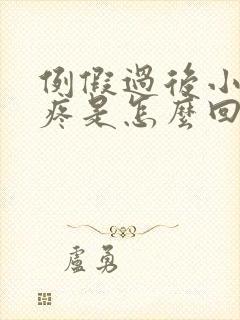 例假過後小
疼是怎麼回
盧勇